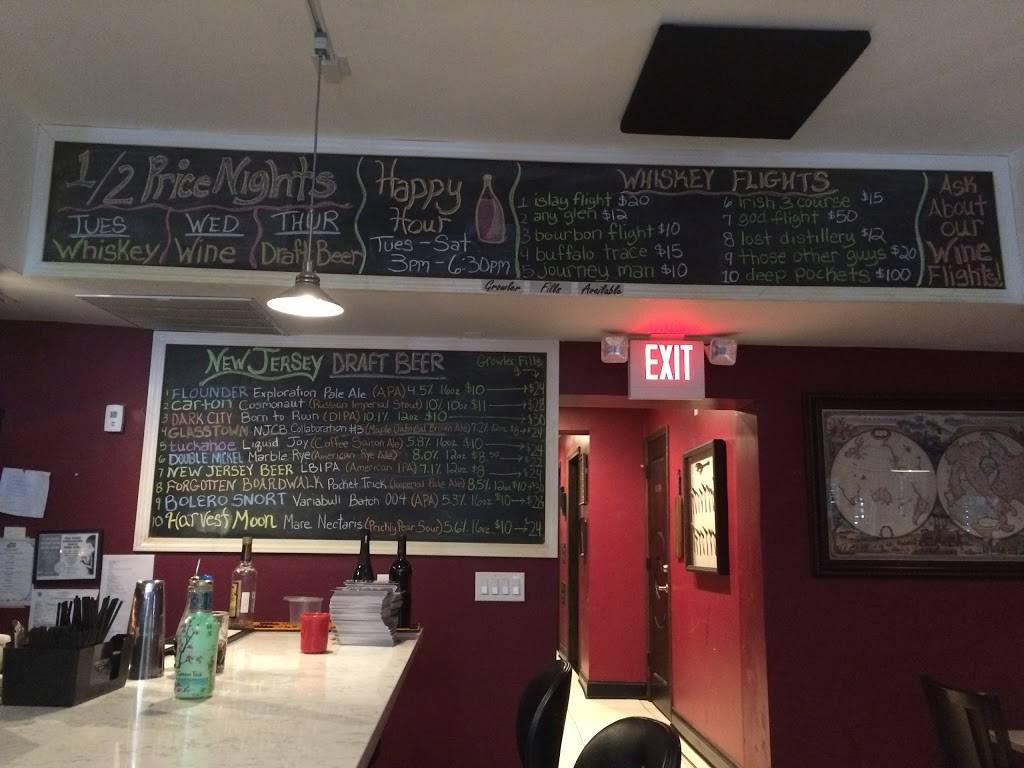 1/2 Price Nights
TUES WED THUR
Whiskey Wine Draft Beer
Happy
Hour
Tues - Sat
3pm - 6:30pm
WHISKEY FLIGHTS
1 islay flight $20
2 any glen $12
3 bourbon flight $10
4 buffalo trace $15
5 journey man $10
6 irish 3 course $15
7 god flight $50
8 lost distillery $12
9 those other guys $20
10 deep pockets $100
Ask
About
our
Wine
Flights!
Growler Fills Available
EXIT
NEW JERSEY DRAFT BEER Growler Fills
1 FLOUNDER Exploration Pale Ale (APA) 4.5% 16oz $10 $24
2 Carton Cosmonaut (Russian Imperial Stout) 10% 10oz $11 $28
3 DARK CITY Born to Run (DIPA) 10.1% 12oz $10 $30
4 GLASSTOWN NJCB Collaboration #3 (Maple Oatmeal Brown Ale) 7.2% 12oz
5 Tuckahoe Liquid Joy (Coffee Saison Ale) 5.8% 16oz $10 $24
6 DOUBLE NICKEL Marble Rye (American Rye Ale) 8.0% 12oz
7 NEW JERSEY BEER LBIPA (American IPA) 7.1% 12oz $8
8 FORGOTTEN BOARDWALK Pocket Trick (Imperial Pale Ale) 8.5% 12oz
9 BOLERO SNORT Variabull Batch 004 (APA) 5.3% 16oz $10 $26
10 Harvest Moon Mare Nectaris (Prickly Pear Sour) 5.6% 16oz $10 $24